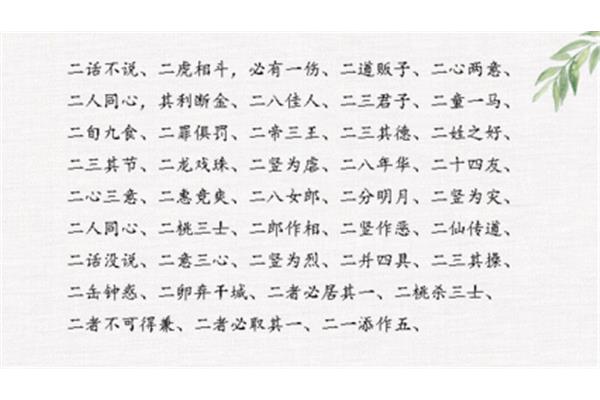 二话不说、二虎相斗，必有一伤、二道贩子、二心两意、
二人同心，其利断金、二八佳人、二三君子、二童一马、
二旬九食、二罪俱罚、二帝三王、二三其德、二姓之好、
二三其节、二龙戏珠、二竖为虐、二八年华、二十四友、
二心三意、二惠竞爽、二八女郎、二分明月、二竖为灾、
二人同心、二桃三士、二郎作相、二竖作恶、二仙传道、
二话没说、二意三心、二竖为烈、二并四具、二三其操、
二缶钟惑、二卵弃干城、二者必居其一、二桃杀三士、
二者不可得兼、二者必取其一、二一添作五、